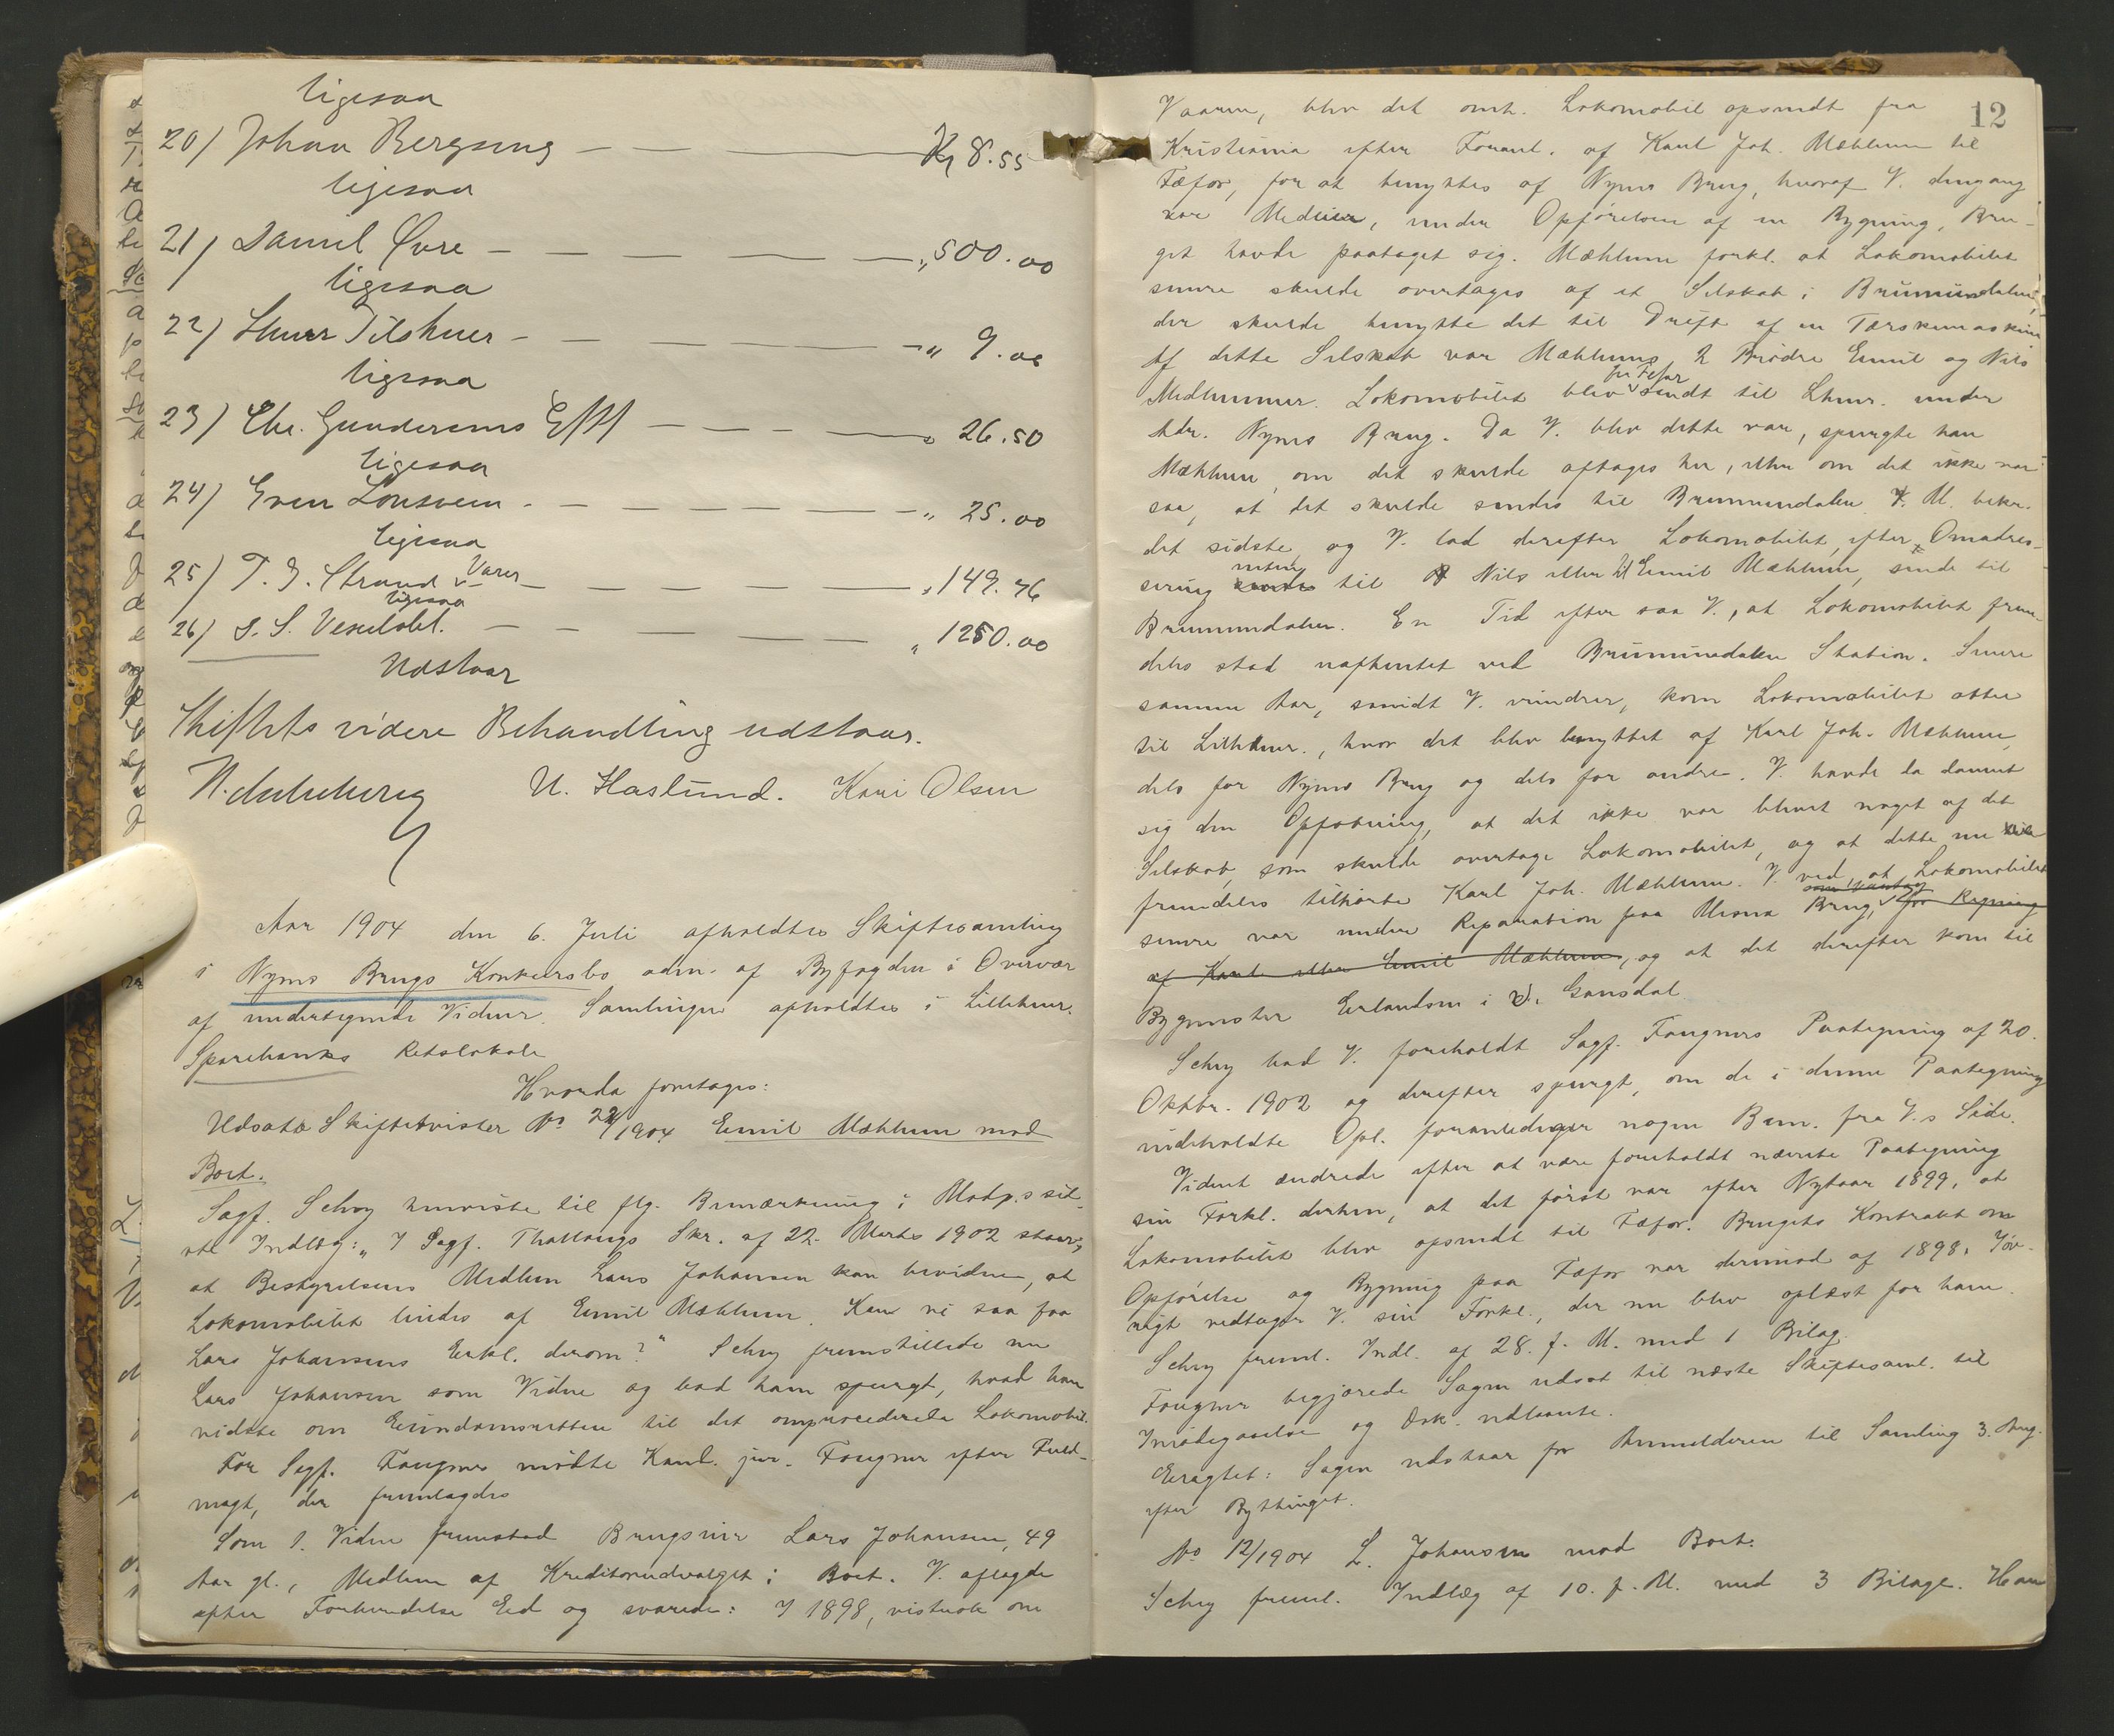 ligesaa
20/ Johan Bergseng — — Kr 8.55
ligesaa
21/ Daniel Øvre — — — — — „ 500.00
ligesaa
22/ Lhmr Tilskuer — — — — — „ 9.00
ligesaa
23/ Chr. Gundersens Eftf — — — — „ 26.50
ligesaa
24/ Even Lønsveen — — — — — — „ 25.00
ligesaa
25/ T. J. Strand Varer — — — — „ 149.76
ligesaa
26/ S. S. Vexelobl. — — — — — „ 1250.00
Udstaar
Skiftets videre Behandling udstaar.
U. Haslund. Kari Olsen
Aar 1904 den 6. Juli afholdtes Skiftesamling
i Nyms Brugs Konkursbo adm. af Byfogden i Overvær
af undertegnede Vidner. Samlingen afholdtes i Lillehmr.
Sparebanks Retslokale
Hvorda foretages:
Udsatte Skiftetvister No 22/1904 Emil Mæhlum mod
Boet.
Sagf. Schry henviste til flg. Bemærkning i Modp.s sid-
ste Indlæg: „I Sagf. Thallaugs Skr. af 22. Marts 1902 staar,
at Bestyrelsens Medlem Lars Johansen kan bevidne, at
Lokomobilet eiedes af Emil Mæhlum. Kan vi saa faa
Lars Johansens Erkl. derom?" Schry fremstillede nu
Lars Johansen som Vidne og bad ham spurgt, hvad han
vidste om Eiendomsretten til det omprocederede Lokomobil.
For Sagf. Fougner mødte Kand. jur. Fougner efter Fuld-
magt, der fremlagdes
Som 1. Vidne fremstod Brugseier Lars Johansen, 49
Aar gl., Medlem af Kreditorudvalget i Boet. V. aflagde
efter Forberedelse Ed og svarede: I 1898, vistnok om
12
Vaaren, blev det omh. Lokomobil opsendt fra
Kristiania efter Foranl. af Karl Joh. Mæhlum til
Fæfor, for at benyttes af Nyms Brug, hvoraf V. dengang
var Medeier, under Opførelsen af en Bygning, Bru-
get havde paataget sig. Mæhlum forkl. at Lokomobilet
senere skulde overtages af et Selskab i Brumunddalen,
der skulde benytte det til Drift af en Tærskemaskine
Af dette Selskab var Mæhlums 2 Brødre Emil og Nils
Medlemmer. Lokomobilet blev fra Fefor sendt til Lhmr. under
Adr. Nyms Brug. Da V. blev dette var, spurgte han
Mæhlum, om det skulde aftages her, eller om det ikke var
saa, at det skulde sendes til Brumunddalen. K. M. bekr.
det sidste, og V. lod derefter Lokomobilet, efter Omadres-
sering enten til Nils eller til Emil Mæhlum, sende til
Brumunddalen. En Tid efter saa V., at Lokomobilet frem-
deles stod uafhentet ved Brumunddalen Station. Senere
samme Aar, savidt V. erindrer, kom Lokomobilet atter
til Lillehmr., hvor det blev benyttet af Karl Joh. Mæhlum,
dels for Nyms Brug og dels for andre. V. havde da dannet
sig den Opfatning, at det ikke var blevet noget af det
Selskab, som skulde overtage Lokomobilet, og at dette nu
fremdeles tilhørte Karl Joh. Mæhlum. V. ved, at Lokomobilet
senere var under Reparation paa Mesna Brug, for Regning
af Karl eller Emil Mæhlum, og at det derefter kom til
Bygmester Erlandsen i Gausdal.
Schry bad V. foreholdt Sagf. Fougners Paategning af 20.
Oktbr. 1902 og derefter spurgt, om de i denne Paategning
indeholdte Opl. foranlediger nogen Bem. fra V.s Side.
Vidnet ændrede efter at være foreholdt nævnte Paategning
sin Forkl. derhen, at det først var efter Nytaar 1899, at
Lokomobilet blev opsendt til Fæfor. Brugets Kontrakt om
Opførelse og Bygning paa Fæfor var derimod af 1898. Iøv-
rigt vedtager V. sin Forkl., der nu blev oplæst for ham.
Schry freml. Indl. af 28. f. M. med 1 Bilag.
Fougner begjærede Sagen udsat til næste Skiftesaml. til
Imødegaaelse og Dok. vedtoges.
Eragtet: Sagen udstaar for Anmelderen til Samling 3. Aug.
efter Bythinget.
No 12/1904 L. Johansen mod Boet.
Schry freml. Indlæg af 10. f. M. med 3 Bilage. Han